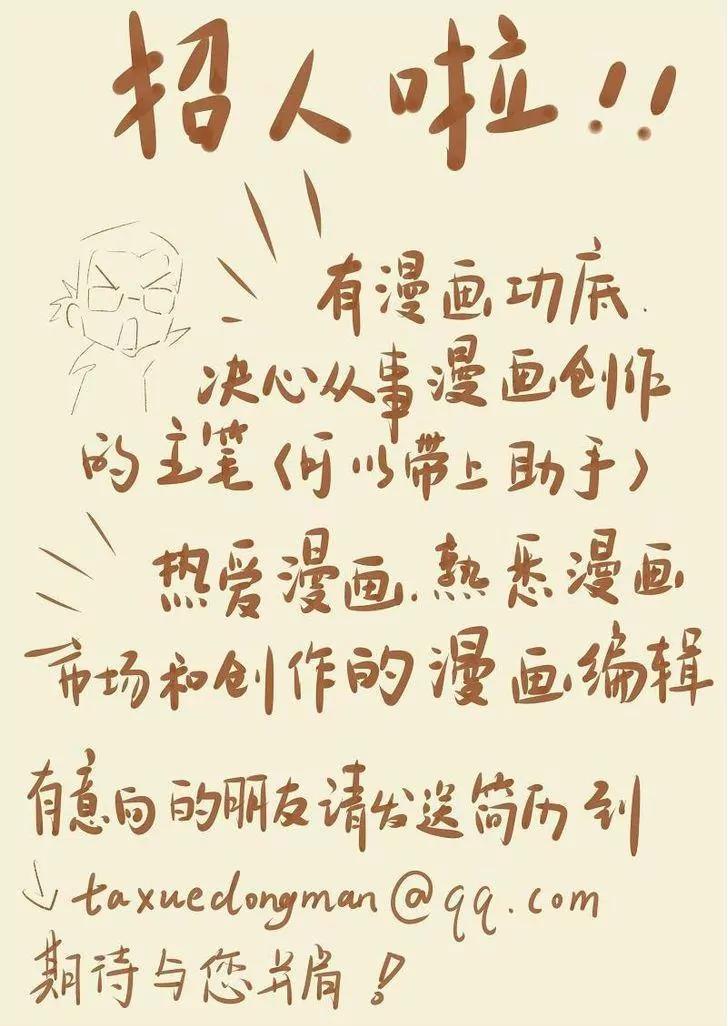 招人啦!!
有漫画功底.
决心从事漫画创作
的主笔〈可以带上助手〉
热爱漫画.熟悉漫画
市场和创作的漫画编辑
有意向的朋友请发送简历到
↓taxuedongman@qq.com
期待与您并肩!